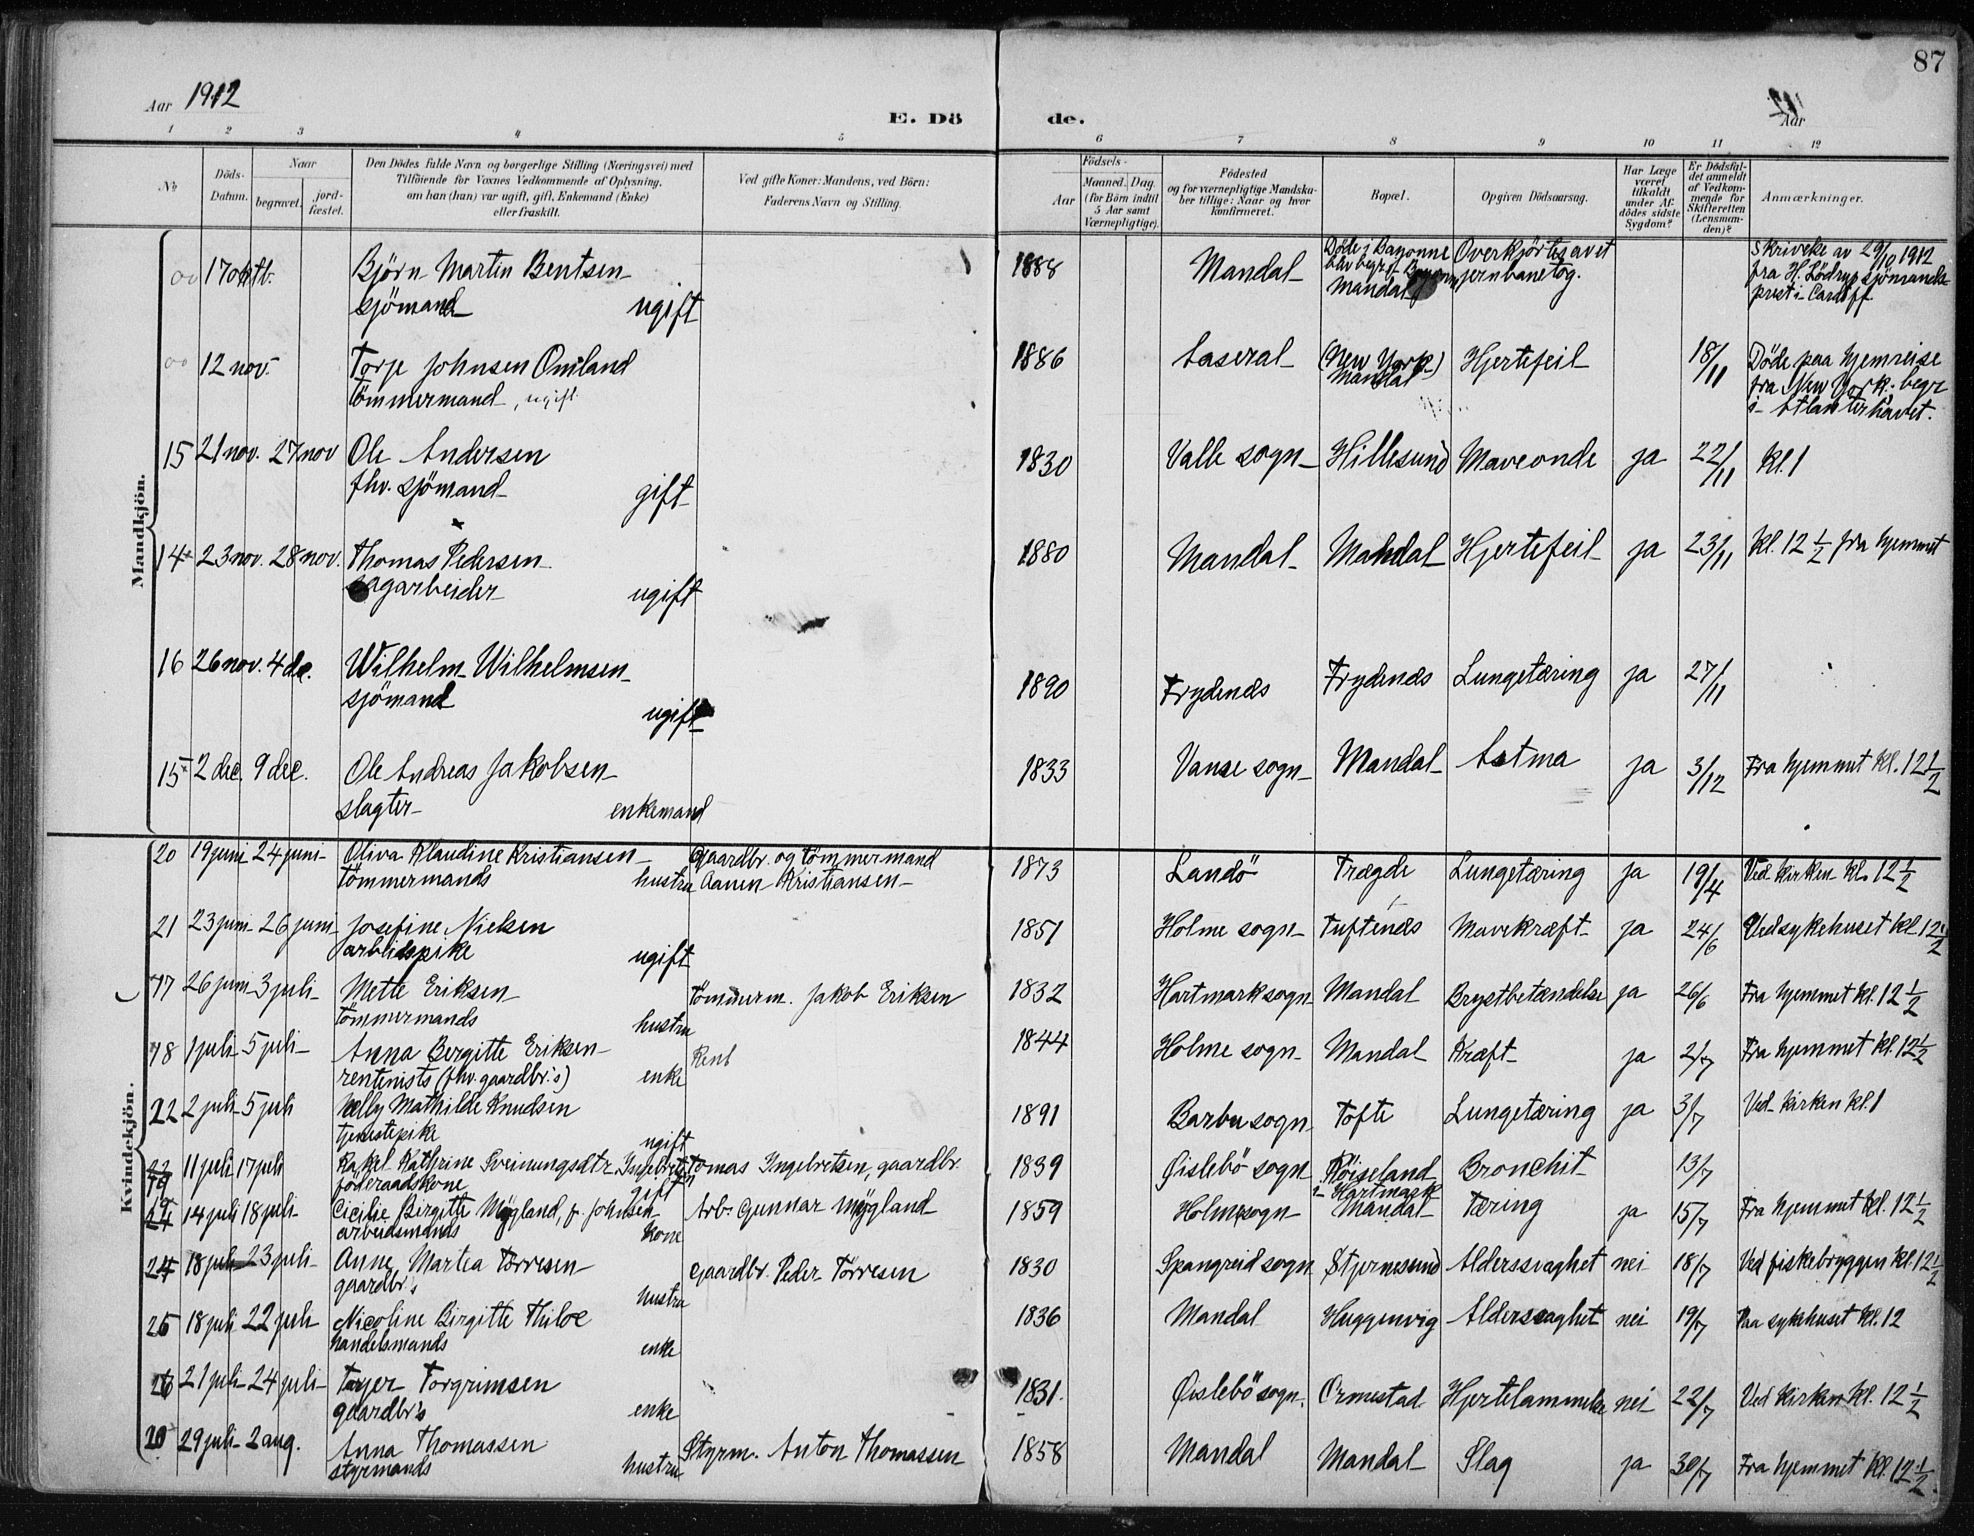 87
Aar 1912
E. Dö de.
Aar
1 2 3 4 5 6 7 8 9 10 11 12
No
Döds-Datum.
Naar begravet. jord-fæstet.
Den Dödes fulde Navn og borgerlige Stilling (Næringsvei) med
Tilföiende for Voxnes Vedkommende af Oplysning,
om han (hun) var ugift, gift, Enkemand (Enke)
eller fraskilt.
Ved gifte Koner: Mandens, ved Börn:
Faderens Navn og Stilling.
Födsels-
Aar
Maaned. Dag.
(for Börn indtil
5 Aar samt
Værnepligtige).
Födested
og for værnepligtige Mandska-
ber tillige: Naar og hvor
konfirmeret.
Bopæl.
Opgiven Dödsaarsag.
Har Læge
været
tilkaldt
under Af-
dödes sidste
Sygdom?
Er Dödsfal-
det anmeldt
af Vedkom-
mende for
Skifteretten
(Lensman-
den)?
Anmærkninger.
Mandkjön.
17 oktb. Björn Martin Bentsen 1888 Mandal Döde i Bayonne Overkjörtes av et Skrivelse av 29/10 1912
blev begr. i Bayonne jernbanetog. fra H. Lödrup sjömands-
sjömand ugift Mandal prest i Cardiff
12 nov. Torje Johnsen Omland 1886 Aaseral (New York) Hjertefeil 18/11 Döde paa hjemreise
Mandal fra New York; begr
Tömmermand, ugift i Atlanterhavet.
15 21 nov. 27 nov Ole Andersen 1830 Valle sogn Hillesund Maveonde ja 22/11 kl. 1
fhv. sjömand gift
14 23 nov. 28 nov. Thomas Pedersen 1880 Mandal Mandal Hjertefeil ja 23/11 kl. 12 1/2 fra hjemmet
sagarbeider ugift
16 26 nov. 4 dec. Wilhelm Wilhelmsen 1890 Frydenæs Frydenæs Lungetæring ja 27/11
sjömand ugift
15 2 dec. 9 dec. Ole Andreas Jakobsen 1833 Vanse sogn Mandal Astma ja 3/12 Fra hjemmet kl. 12 1/2
slagter enkemand
Kvindekjön.
20 19 juni 24 juni Oliva Klaudine Kristiansen Gaardbr. og tömmermand 1873 Landö Trægde Lungetæring ja 19/4 Ved kirken kl. 12 1/2
tömmermands hustru Aanen Kristiansen
21 23 juni 26 juni Josefine Nielsen 1851 Holme sogn Tuftenæs Mavekræft ja 24/6 Ved sykehuset kl. 12 1/2
arbeidspike ugift
17 26 juni 3 juli Mette Eriksen Tömmerm. Jakob Eriksen 1832 Hartmark sogn Mandal Brystbetændelse ja 26/6 Fra hjemmet kl. 12 1/2
Tömmermands hustru
18 1 juli 5 juli Anna Bergitte Eriksen Rent 1844 Holme sogn Mandal Kræft ja 2/7 Fra hjemmet kl. 12 1/2
rentenists (fhv. gaardbr.'s) enke
22 2 juli 5 juli Nelly Mathilde Knudsen 1891 Barbu sogn Tofte Lungetæring ja 3/7 Ved kirken kl. 1
tjenestepike ugift
23 11 juli 17 juli Rakel Kathrine Sveinungsdtr. Ingebretsen Tomas Ingebretsen, gaardbr. 1839 Øislebö sogn Röiseland Bronchit 13/7
föderaadskone gift i Hartmark
19 14 juli 18 juli Cicilie Birgitte Mygland, f. Johnsen Arb. Gunnar Mygland 1859 Holme sogn Mandal Tæring ja 15/7 Fra hjemmet kl. 12 1/2
arbeidsmands kone
24 18 juli 23 juli Anne Martea Törresen Gaardbr. Peder Törresen 1830 Spangreid sogn Stjernesund Alderssvaghet nei 18/7 Ved fiskebryggen kl. 12 1/2
gaardbr.'s hustru
25 18 juli 22 juli Nicoline Birgitte Thiloe 1836 Mandal Huggenvig Alderssvaghet nei 19/7 Paa sykehuset kl. 12
handelsmands enke
26 21 juli 24 juli Tayer Torgrimsen 1831 Øislebö sogn. Ormestad Hjertelammelse nei 22/7 Ved kirken kl. 12 1/2
gaardbr's enke
20 29 juli 2 aug. Anna Thomassen Styrm. Anton Thomassen 1858 Mandal Mandal Slag ja 30/7 Fra hjemmet kl. 12 1/2
styrmands hustru